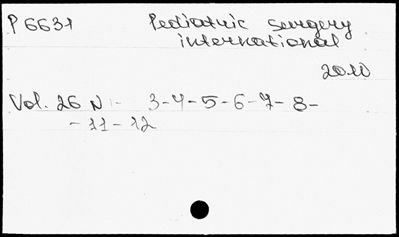 P 6631 Pediatric surgery
international
2010
Vol. 26 N - 3-4-5-6-7-8-
- 11 - 12